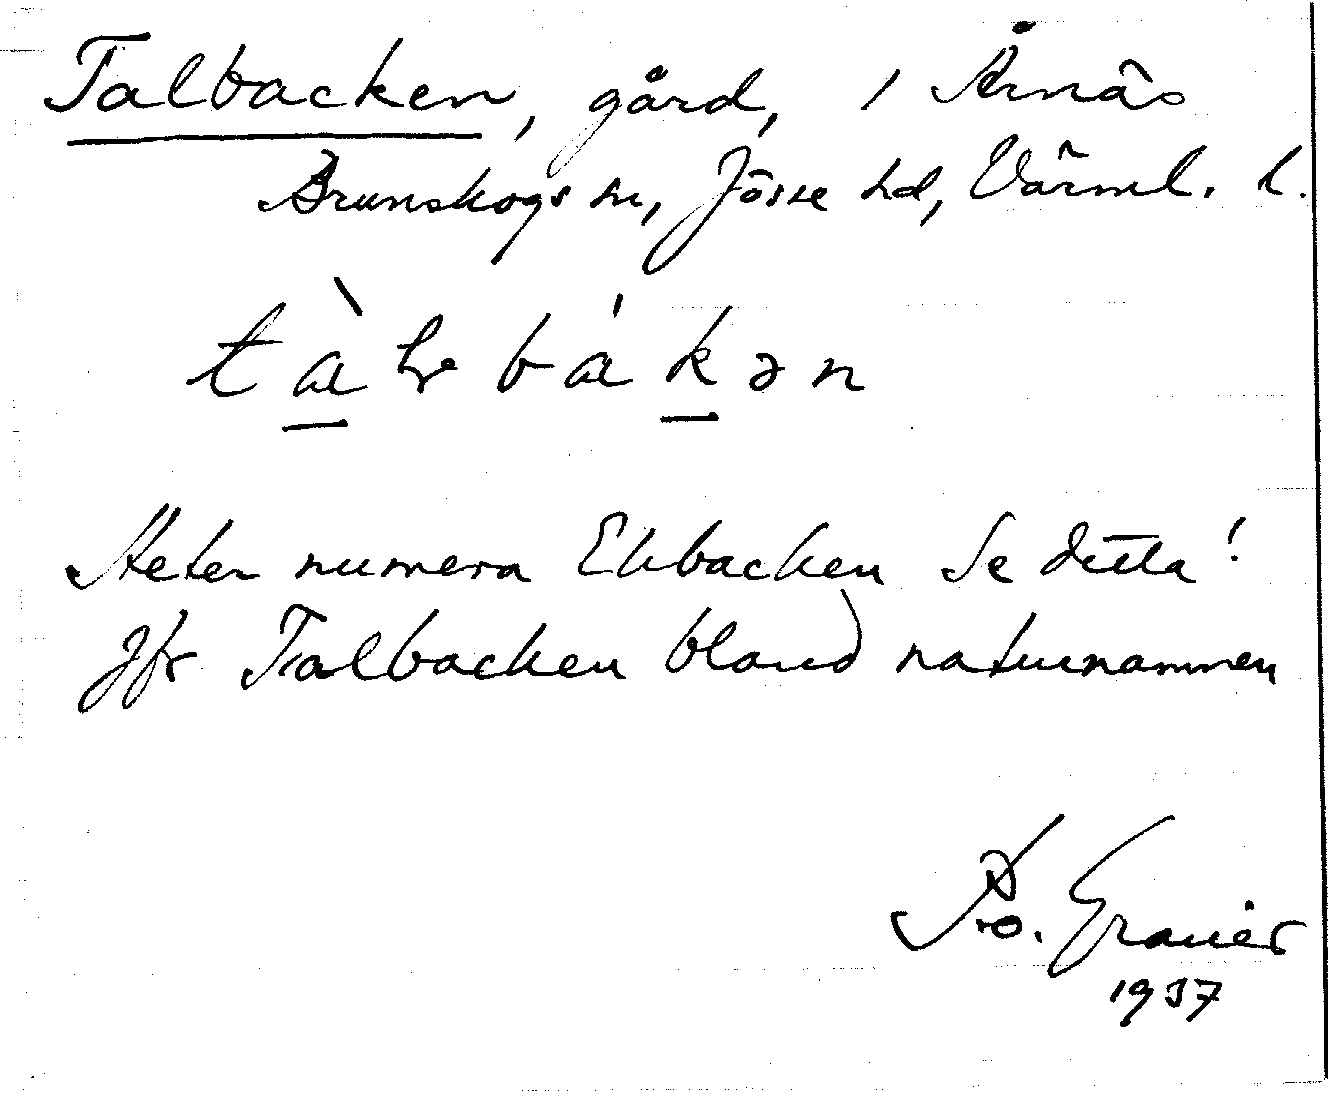 Talbacken, gård, i Årnäs
Brunskogs sn, Jösse hd, Värml. l.
Heter numera Ekbacken Se detta!
Jfr Talbacken bland naturnamnen
Granér
1937